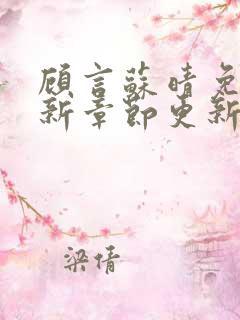 顾言蘇晴免
新章節更新
梁倩